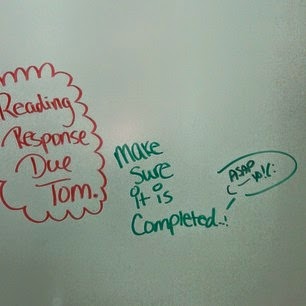 Reading
Response
Due
Tom.
Make
Sure
it is
Completed..
ASAP